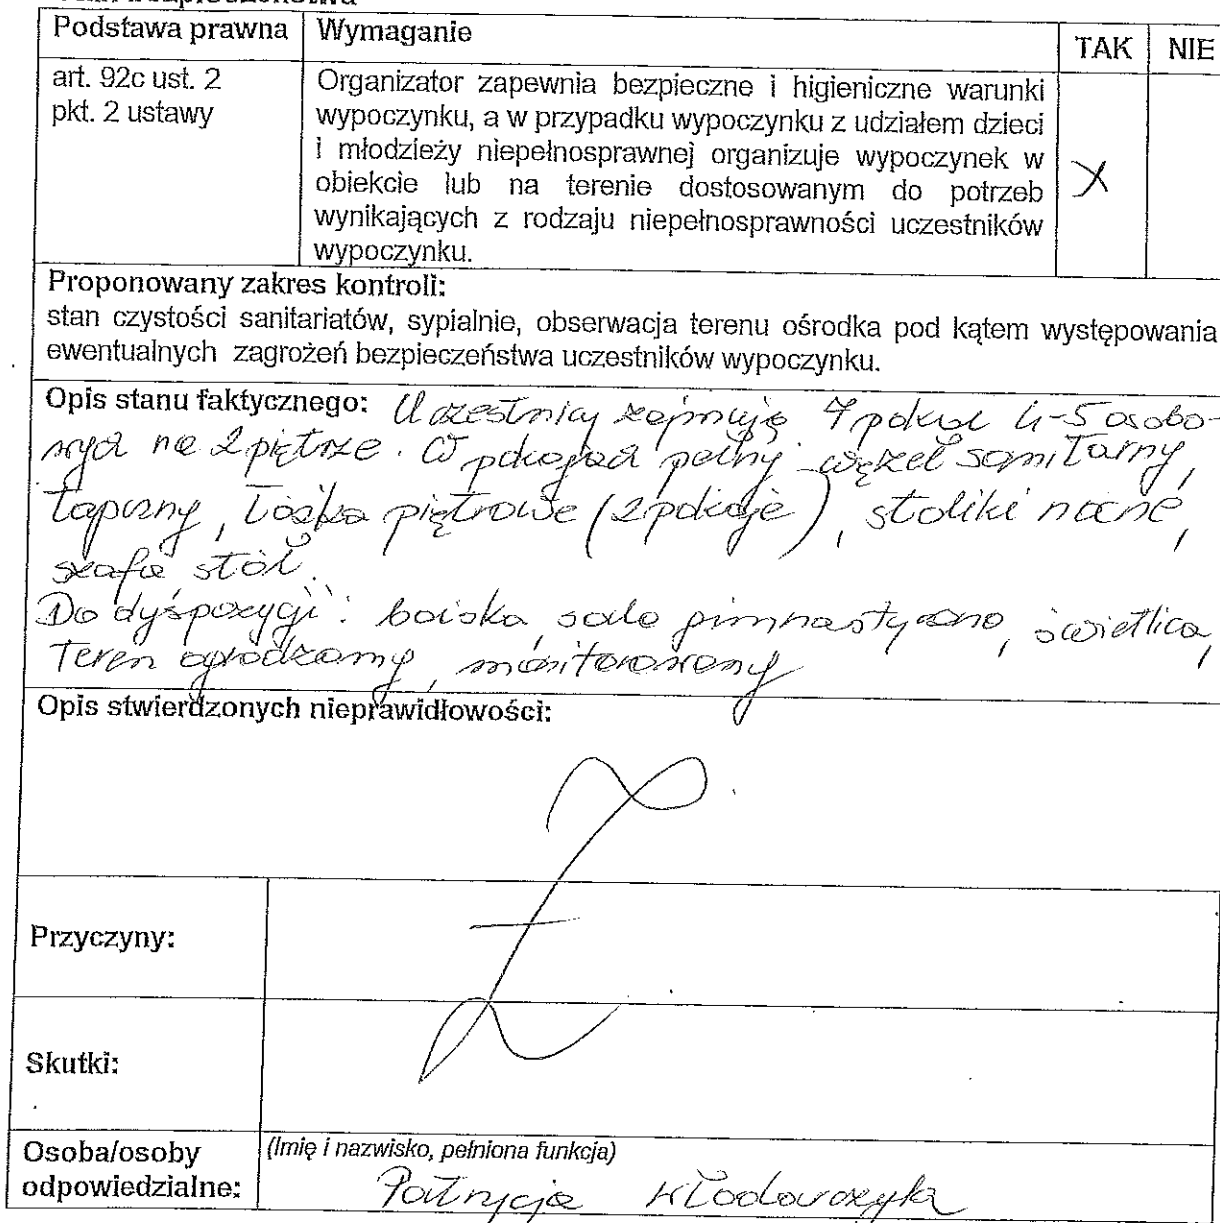 Podstawa prawna Wymaganie TAK NIE
art. 92c ust. 2
pkt. 2 ustawy
Organizator zapewnia bezpieczne i higieniczne warunki
wypoczynku, a w przypadku wypoczynku z udziałem dzieci
i młodzieży niepełnosprawnej organizuje wypoczynek w
obiekcie lub na terenie dostosowanym do potrzeb
wynikających z rodzaju niepełnosprawności uczestników
wypoczynku.
X
Proponowany zakres kontroli:
stan czystości sanitariatów, sypialnie, obserwacja terenu ośrodka pod kątem występowania
ewentualnych zagrożeń bezpieczeństwa uczestników wypoczynku.
Opis stanu faktycznego: Uczestnicy zajmują 7 pokoi 4-5 osobo-
wych na 2 piętrze. W pokojach pełny węzeł sanitarny,
tapczany, łóżka piętrowe (2 pokoje), stoliki nocne,
szafa stół.
Do dyspozycji: boiska, sala gimnastyczna, świetlica,
Teren ogrodzony, monitorowany
Opis stwierdzonych nieprawidłowości:
Przyczyny:
Skutki:
Osoba/osoby
odpowiedzialne:
(Imię i nazwisko, pełniona funkcja)
Patrycja